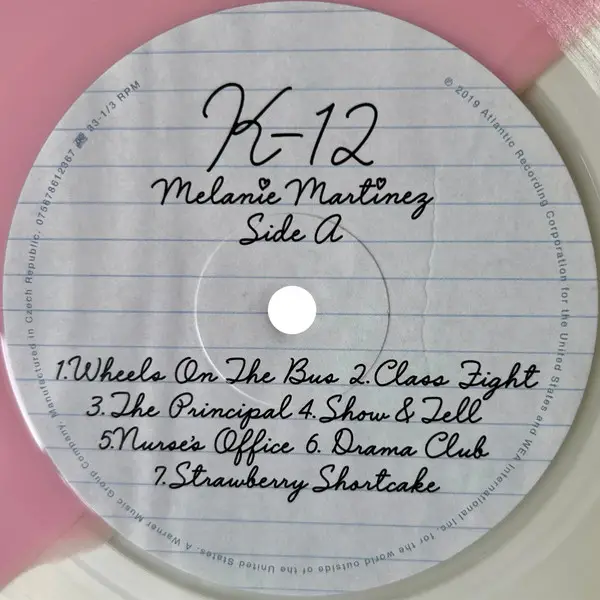 K-12
Melanie Martinez
Side A
1.Wheels On The Bus 2.Class Fight
3.The Principal 4.Show & Tell
5.Nurse's Office 6. Drama Club
7.Strawberry Shortcake
℗ 2019 Atlantic Recording Corporation for the United States and WEA International Inc. for the world outside of the United States. A Warner Music Group Company. Manufactured in Czech Republic. 075678612367
33-1/3 RPM